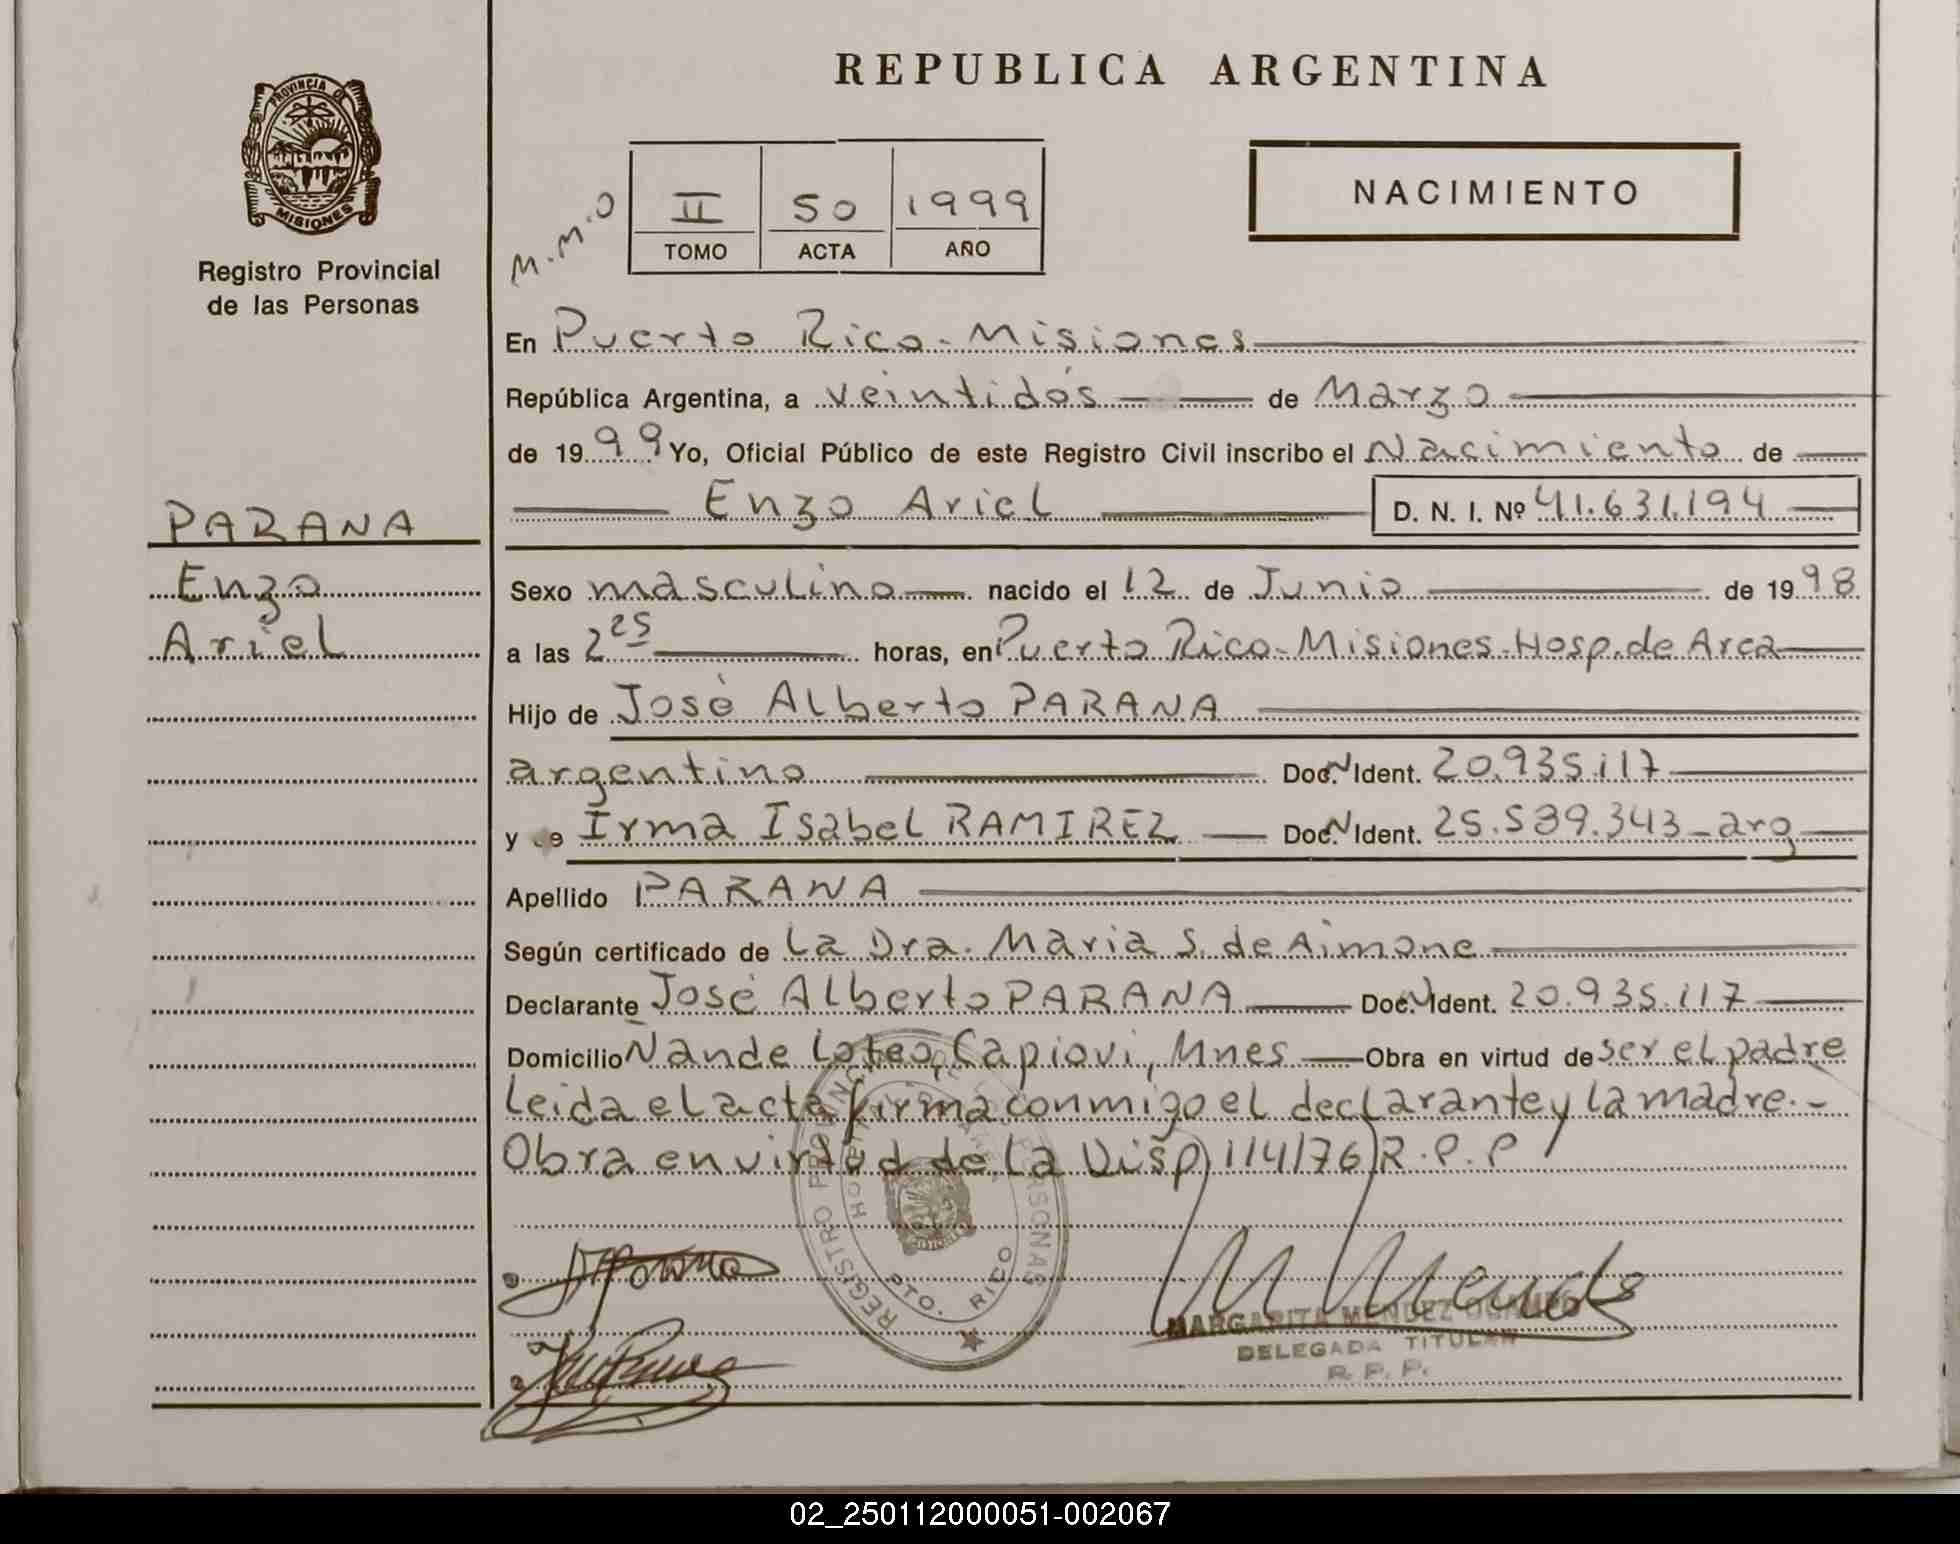 REPUBLICA ARGENTINA
PROVINCIA DE
MISIONES
Registro Provincial
de las Personas
M.M.O
II 50 1999
TOMO ACTA AÑO
NACIMIENTO
En Puerto Rico - Misiones
República Argentina, a veintidós de Marzo
de 1999 Yo, Oficial Público de este Registro Civil inscribo el Nacimiento de
Enzo Ariel D. N. I. Nº 41.631.194
PARANA
Enzo
Ariel
Sexo masculino nacido el 12 de Junio de 1998
a las 2 25 horas, en Puerto Rico - Misiones - Hosp. de Area
Hijo de José Alberto PARANA
argentino Doc. N Ident. 20.935.117
y e Irma Isabel RAMIREZ Doc. N Ident. 25.539.343 - arg
Apellido PARANA
Según certificado de La Dra. Maria S. de Aimone
Declarante José Alberto PARANA Doc. N Ident. 20.935.117
Domicilio Ñande Loteo, Capiovi, Mnes Obra en virtud de ser el padre
Leida el acta firma conmigo el declarante y la madre.-
Obra en virtud de la Disp 114/76 R.P.P
REGISTRO PERSONAS
PTO. RICO
MARGARITA MENDEZ OCAMPO
DELEGADA TITULAR
R. P. P.
02_250112000051-002067